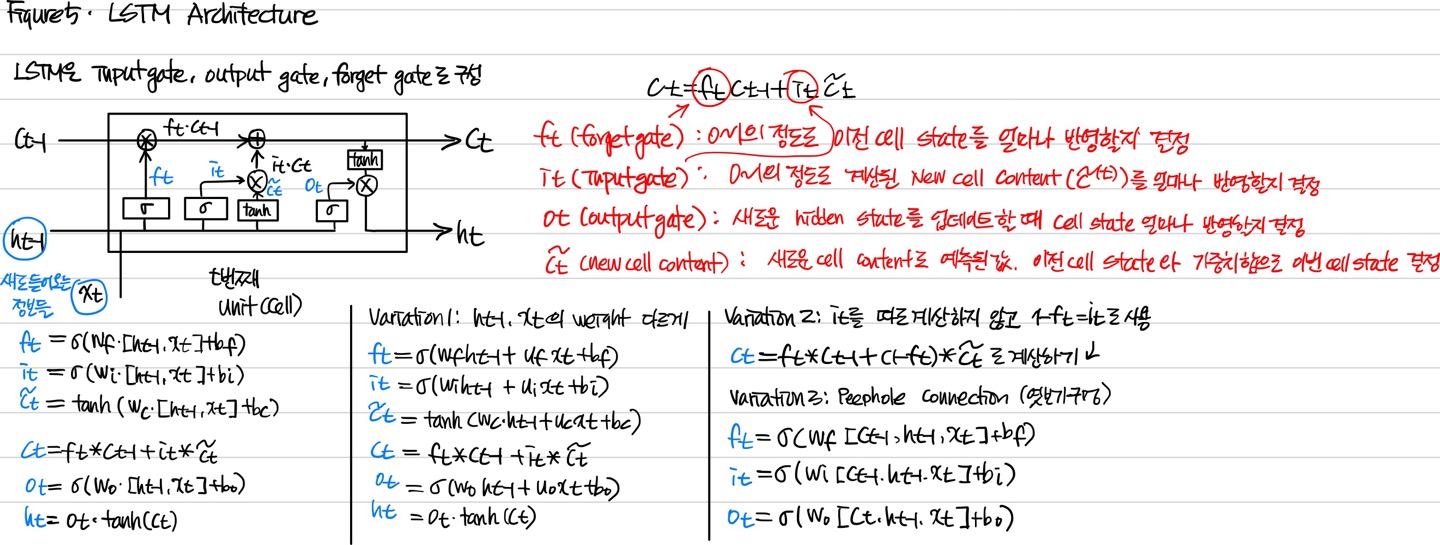 Figure 5. LSTM Architecture
LSTM은 Input gate, output gate, forget gate로 구성
Ct-1
ft·Ct-1
Ct
ft
it
it·C̃t
Ot
tanh
σ
σ
tanh
σ
ht-1
ht
새로 들어오는
정보들
xt
t번째
unit(cell)
Ct=ftCt-1+itC̃t
ft (forget gate) : 0~1의 정도로 이전 cell state를 얼마나 반영할지 결정
it (Input gate) : 0~1의 정도로 계산된 New cell content(C̃(t))를 얼마나 반영할지 결정
Ot (output gate) : 새로운 hidden state를 업데이트할 때 cell state 얼마나 반영할지 결정
C̃t (new cell content) : 새로운 cell content로 예측된 값. 이전 cell state와 가중치합으로 이번 cell state 결정
ft = σ(Wf·[ht-1, xt]+bf)
it = σ(Wi·[ht-1, xt]+bi)
C̃t = tanh(Wc·[ht-1, xt]+bc)
Ct=ft*Ct-1+it*C̃t
Ot= σ(Wo·[ht-1, xt]+bo)
ht= Ot·tanh(Ct)
Variation 1: ht-1, xt의 weight 다르게
ft=σ(Wfht-1+ Uf xt+bf)
it =σ(Wiht-1 + Uixt+bi)
C̃t = tanh(Wc·ht-1+Ucxt+bc)
Ct = ft*Ct-1+it*C̃t
Ot =σ(Wo ht-1+Uoxt+bo)
ht =Ot·tanh(Ct)
Variation 2: it를 따로 계산하지 않고 1-ft=it로 사용
Ct=ft*Ct-1+(1-ft)*C̃t 로 계산하기
Variation 3: Peephole connection (엿보기구멍)
ft= σ(Wf [Ct-1, ht-1, xt]+bf)
it =σ(Wi [Ct-1, ht-1, xt]+bi)
Ot= σ(Wo [Ct, ht-1, xt]+bo)